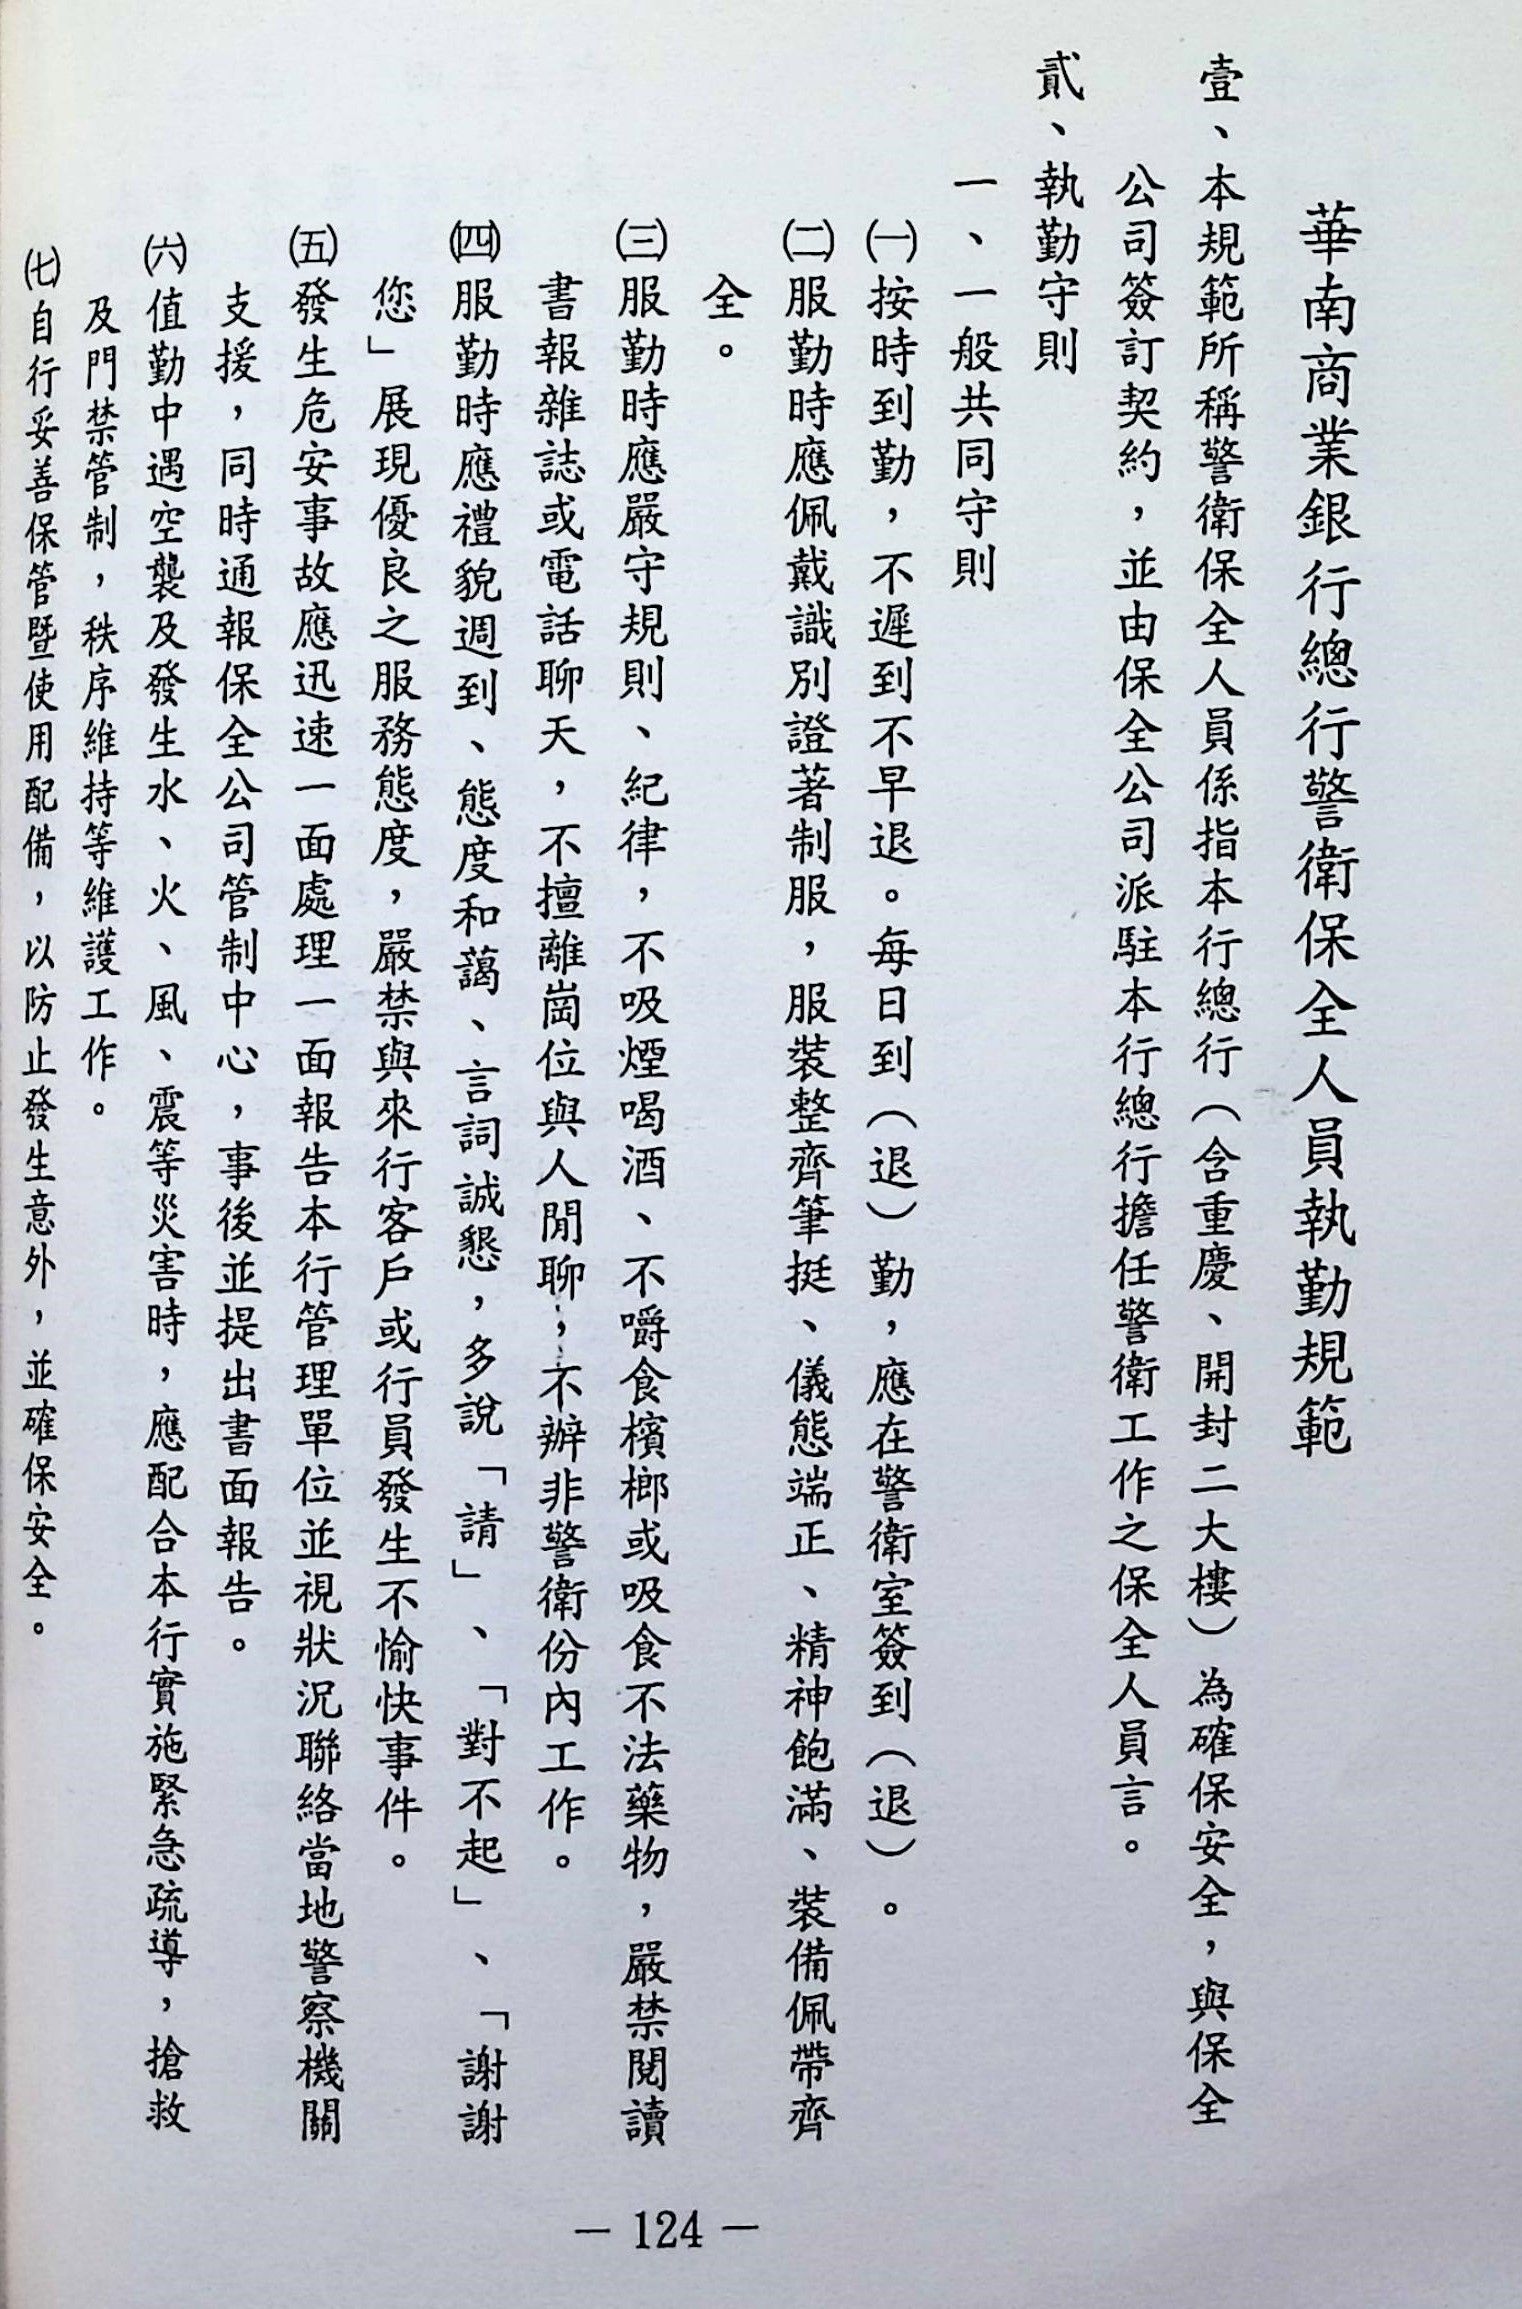 華南商業銀行總行警衛保全人員執勤規範
壹、本規範所稱警衛保全人員係指本行總行（含重慶、開封二大樓）為確保安全，與保全
公司簽訂契約，並由保全公司派駐本行總行擔任警衛工作之保全人員言。
貳、執勤守則
一、一般共同守則
㈠按時到勤，不遲到不早退。每日到（退）勤，應在警衛室簽到（退）。
㈡服勤時應佩戴識別證著制服，服裝整齊筆挺、儀態端正、精神飽滿、裝備佩帶齊
全。
㈢服勤時應嚴守規則、紀律，不吸煙喝酒、不嚼食檳榔或吸食不法藥物，嚴禁閱讀
書報雜誌或電話聊天，不擅離崗位與人閒聊，不辦非警衛份內工作。
㈣服勤時應禮貌週到、態度和藹、言詞誠懇，多說「請」、「對不起」、「謝謝
您」展現優良之服務態度，嚴禁與來行客戶或行員發生不愉快事件。
㈤發生危安事故應迅速一面處理一面報告本行管理單位並視狀況聯絡當地警察機關
支援，同時通報保全公司管制中心，事後並提出書面報告。
㈥值勤中遇空襲及發生水、火、風、震等災害時，應配合本行實施緊急疏導，搶救
及門禁管制，秩序維持等維護工作。
㈦自行妥善保管暨使用配備，以防止發生意外，並確保安全。
— 124 —